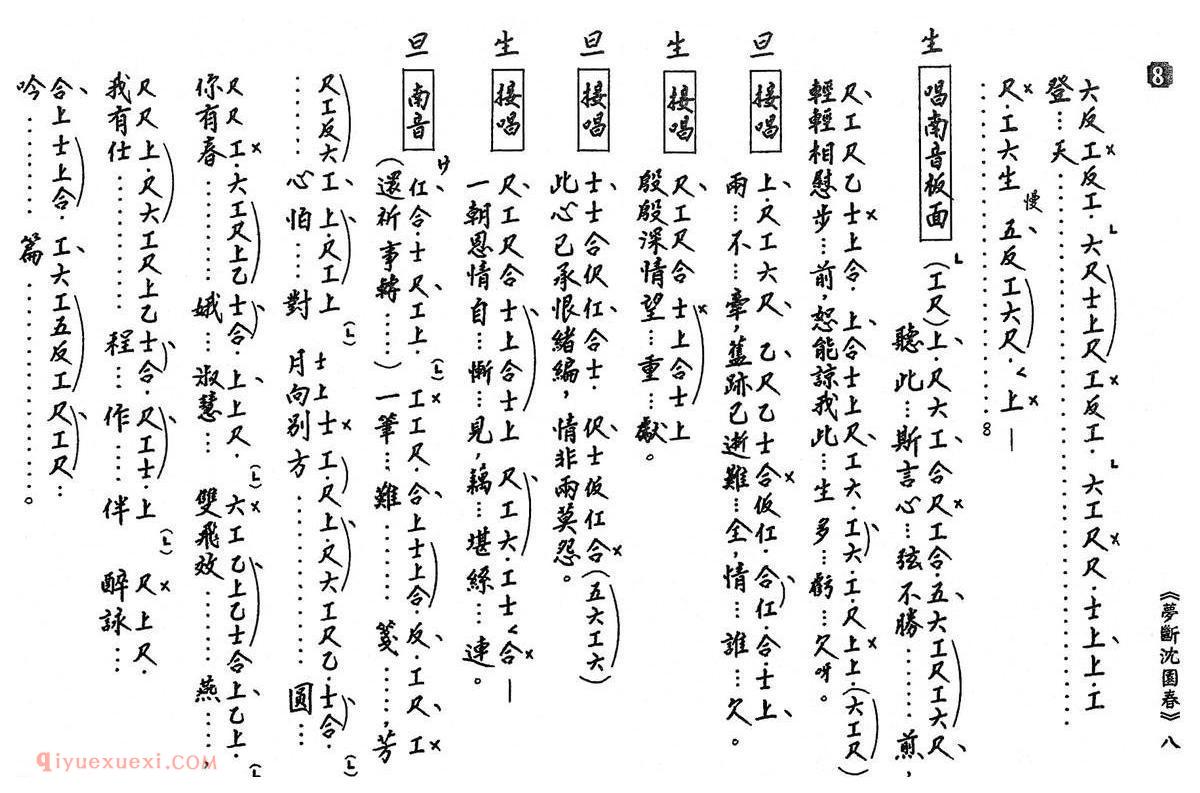 8
尺反工反工.六尺士上尺工反工.六工尺尺.士上上.工
登…天
尺.工六生 慢 五反工六尺.上—
生 唱南音板面
(工尺)上.尺六工.合尺工合.五六工尺工六尺
聽此…斯言心…弦不勝……煎,
尺.工尺乙士上合.上合士上尺工六.工六.工尺上上.(六工尺)
輕輕相慰步…前,恕能諒我此…生多…虧…欠呀。
旦 接唱
上.尺工六尺.乙尺乙士合仮仜.合仜.合士上
兩…不…牽,舊跡已逝難…全,情…誰…欠。
生 接唱
尺工尺合士上合士上
殷殷深情望…重…獻。
旦 接唱
士士合伬仜合士.伬士仮仜合(五六工六)
此心已承恨緒編,情非兩莫怨。
生 接唱
尺工尺合士上合士上 尺工六.工士合—
一朝恩情自…慚…見,藕…堪絲…連。
旦 南音
仜合.士尺.工上.工工尺.合上士上合.反.工尺.工
(還祈事轉……)一筆…難……箋……,芳
尺工反六工.上.尺工上 士上士工.尺上.尺六工尺乙.士合.
……心怕…對 月向別方………圓…
尺尺工.六工尺上乙士合.上上尺.六工乙上乙士合上乙上.
你有春………娥…淑慧…雙飛效………燕……,
尺尺上.尺六工尺上乙士合.尺工士.上 尺上尺.
我有仕………程…作……伴 醉詠…
合上士上合.工六工五反工尺工尺…
吟………篇…………。
《夢斷沈園春》八
qiyuexuexi.COM